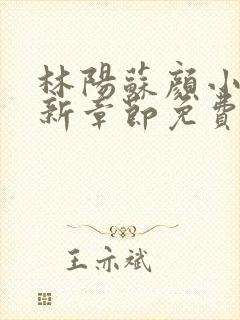 林陽蘇顔小
新章節免費
王亦斌